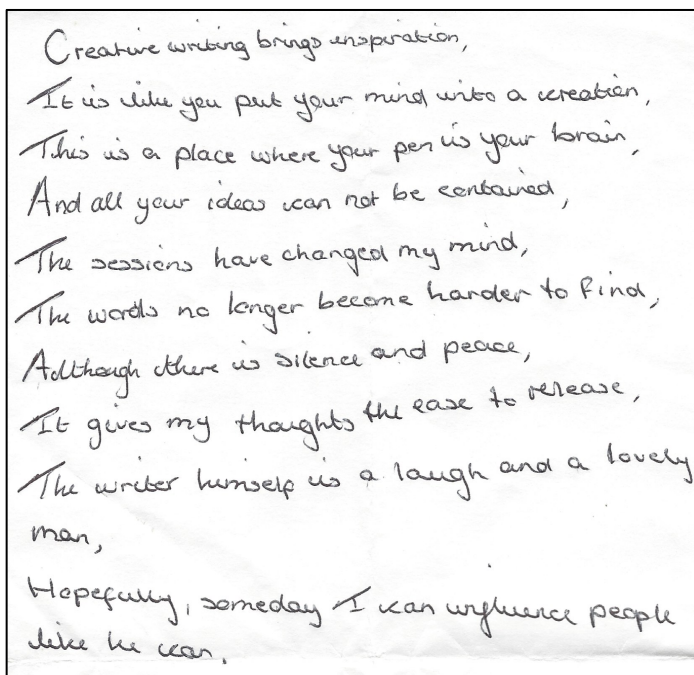 Creative writing brings inspiration,
It is like you put your mind into a creation,
This is a place where your pen is your brain,
And all your ideas can not be contained,
The sessions have changed my mind,
The words no longer become harder to find,
Although there is silence and peace,
It gives my thoughts the ease to release,
The writer himself is a laugh and a lovely
man,
Hopefully, someday I can influence people
like he can.